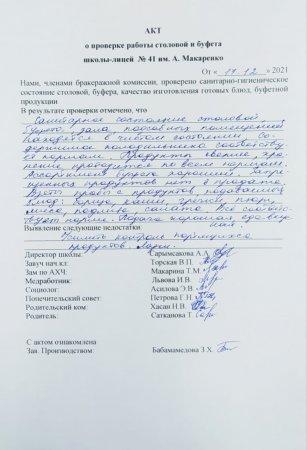 АКТ
о проверке работы столовой и буфета
школы-лицей № 41 им. А. Макаренко
От « 17.12 » 2021
Нами, членами бракеражной комиссии, проверено санитарно-гигиеническое
состояние столовой, буфера, качество изготовления готовых блюд, буфетной
продукции
В результате проверки отмечено, что
Санитарное состояние столовой
буфета, зала, подсобных помещений
находятся в чистом состоянии. Со-
держимое холодильника соответству
ет нормам. Продукты свежие, хра-
нение проводится по всем нормам.
Ассортимент буфета хороший. Запре
щенных продуктов нет в продаже.
Взяты пробы с продуктов, подаваемых
блюд: борща, каши, гречки, пюре,
мяса, подлива, салата. Всё соответ-
ствует норме. Подача хорошая, еда вкус
ная.
Выявление следующие недостатки.
Усилить контроль портящихся
продуктов.
Директор школы: Сарымсакова А.А
Завуч нач кл: Торская В.П.
Зам по АХЧ: Макарина Т.М.
Медработник: Львова И.В
Социолог: Асилова Э.В
Попечительский совет: Петрова Г.Н
Родительский ком: Хасан Н.В
Родитель: Сатканова Т
С актом ознакомлена
Зав. Производством: Бабамамедова З.Х.